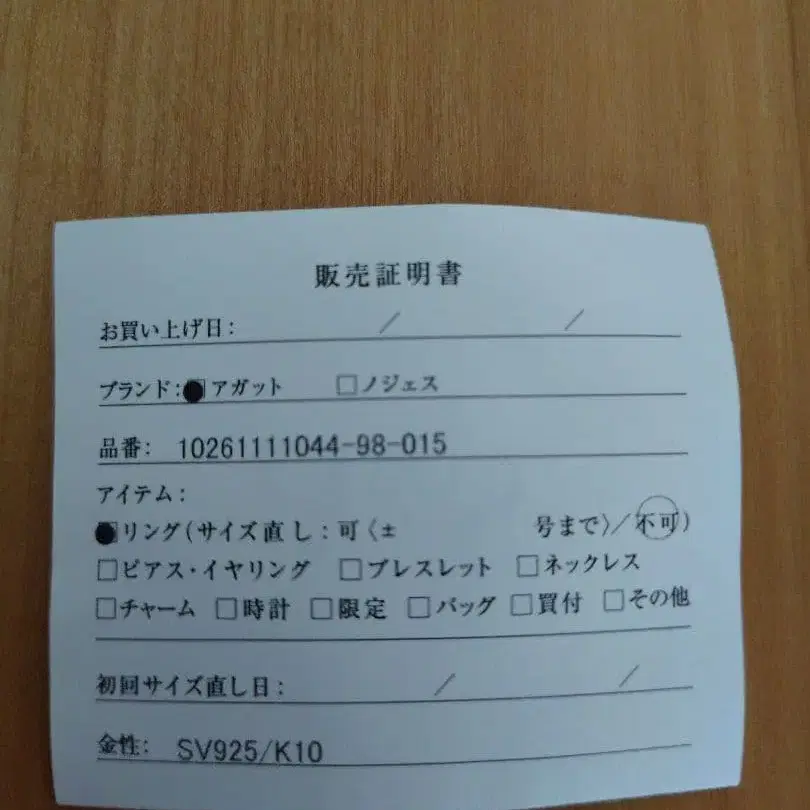 販売証明書
お買い上げ日: / /
ブランド:■アガット □ノジェス
品番: 10261111044-98-015
アイテム:
■リング(サイズ直し:可〈± 号まで〉/不可)
□ピアス・イヤリング □ブレスレット □ネックレス
□チャーム □時計 □限定 □バッグ □買付 □その他
初回サイズ直し日: / /
金性: SV925/K10